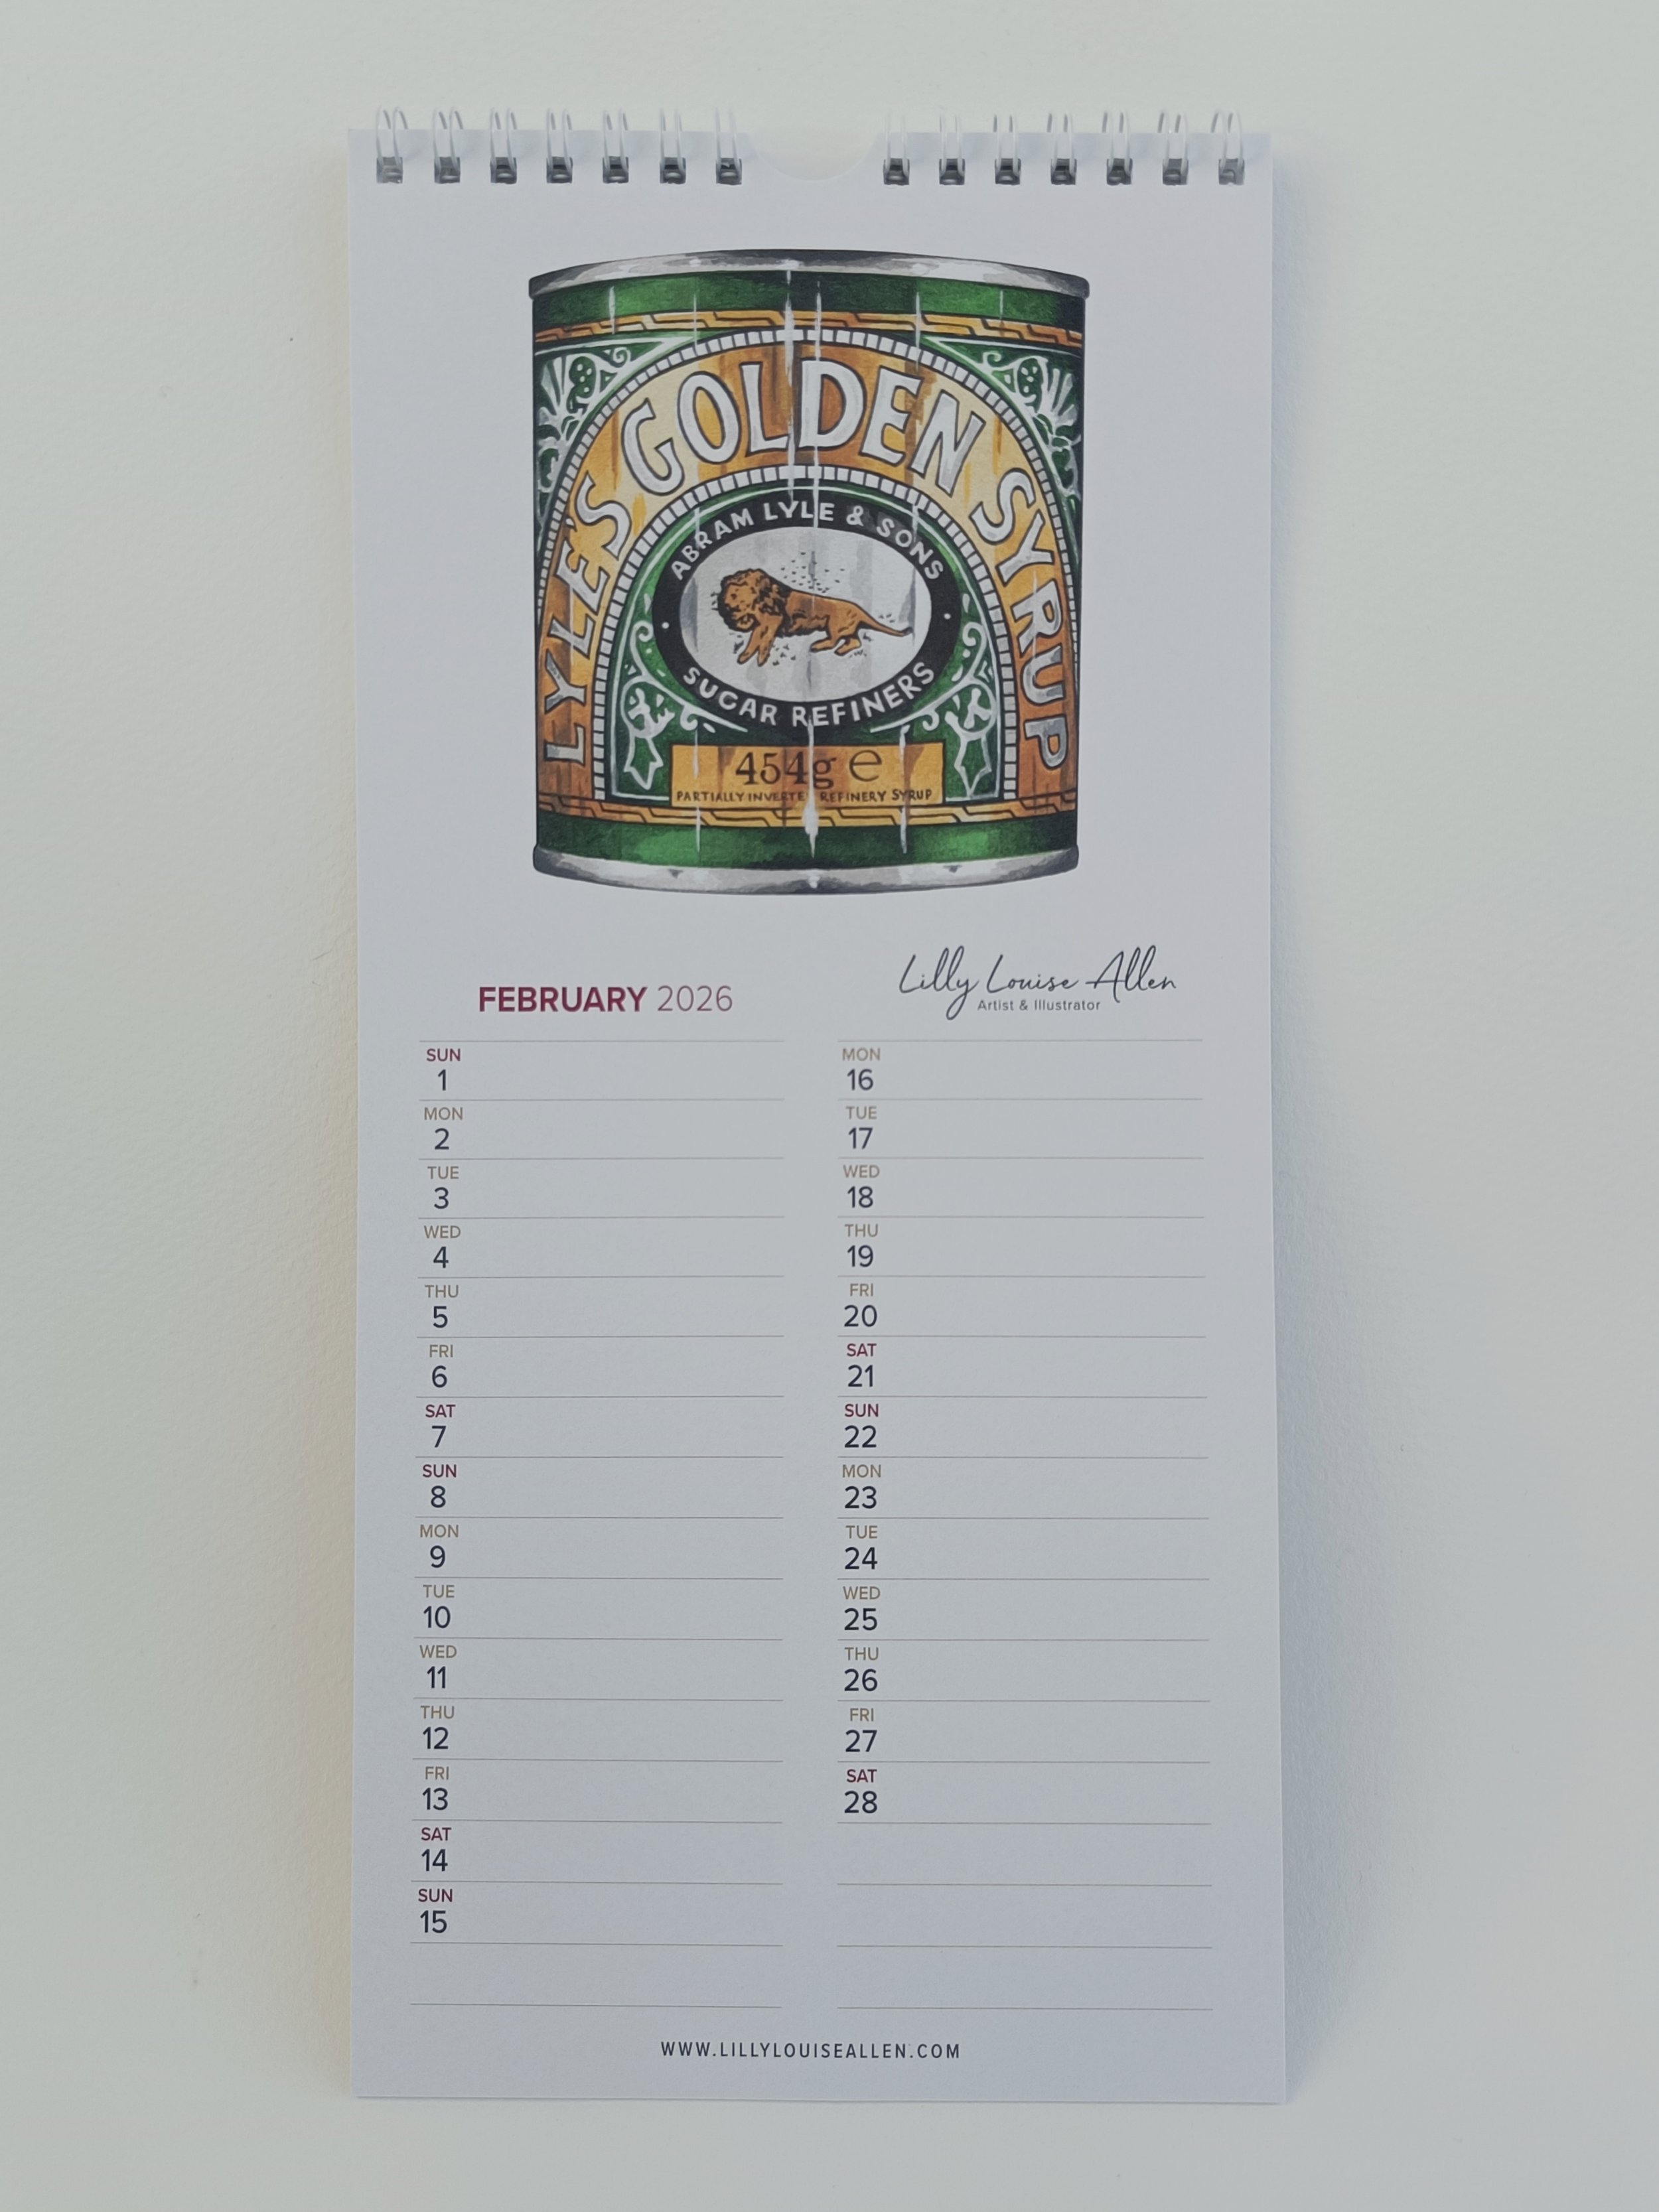 LYLE'S GOLDEN SYRUP
ABRAM LYLE & SONS
SUGAR REFINERS
454g e
PARTIALLY INVERTE REFINERY SYRUP
Lilly Louise Allen
Artist & Illustrator
FEBRUARY 2026
SUN
1
MON
2
TUE
3
WED
4
THU
5
FRI
6
SAT
7
SUN
8
MON
9
TUE
10
WED
11
THU
12
FRI
13
SAT
14
SUN
15
MON
16
TUE
17
WED
18
THU
19
FRI
20
SAT
21
SUN
22
MON
23
TUE
24
WED
25
THU
26
FRI
27
SAT
28
WWW.LILLYLOUISEALLEN.COM